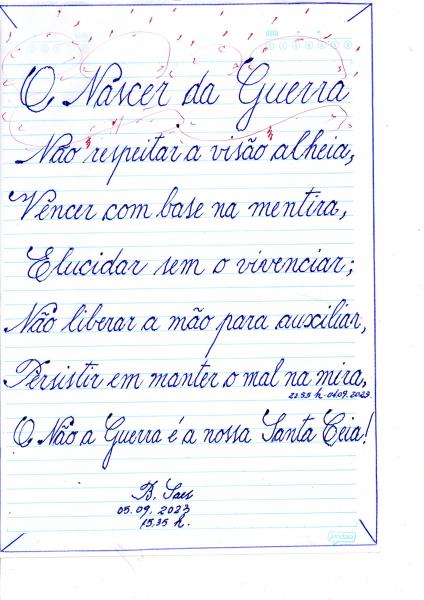 data
O Nascer da Guerra
Não respeitar a visão alheia,
Vencer com base na mentira,
Elucidar sem o vivenciar;
Não liberar a mão para auxiliar,
Persistir em manter o mal na mira,
O Não a Guerra é a nossa Santa Ceia!
B. Saes
05.09.2023
15.35 h.
jandaia